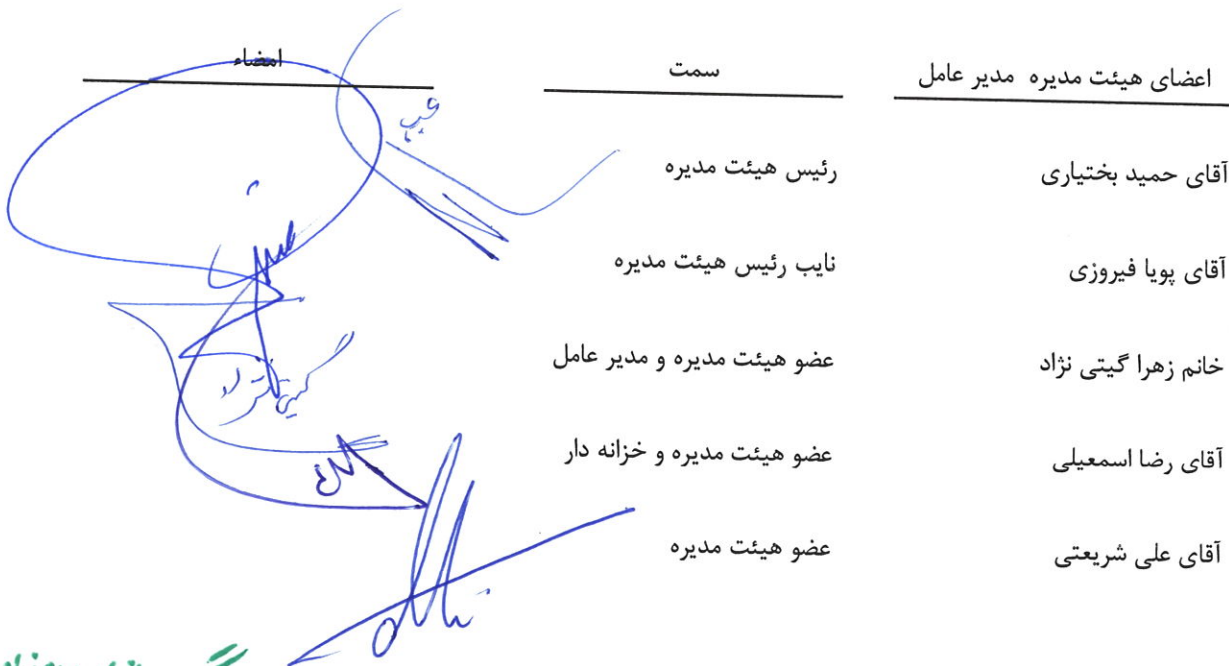 اعضای هیئت مدیره مدیر عامل سمت امضاء
آقای حمید بختیاری رئیس هیئت مدیره
آقای پویا فیروزی نایب رئیس هیئت مدیره
خانم زهرا گیتی نژاد عضو هیئت مدیره و مدیر عامل
گیتی نژاد
آقای رضا اسمعیلی عضو هیئت مدیره و خزانه دار
آقای علی شریعتی عضو هیئت مدیره